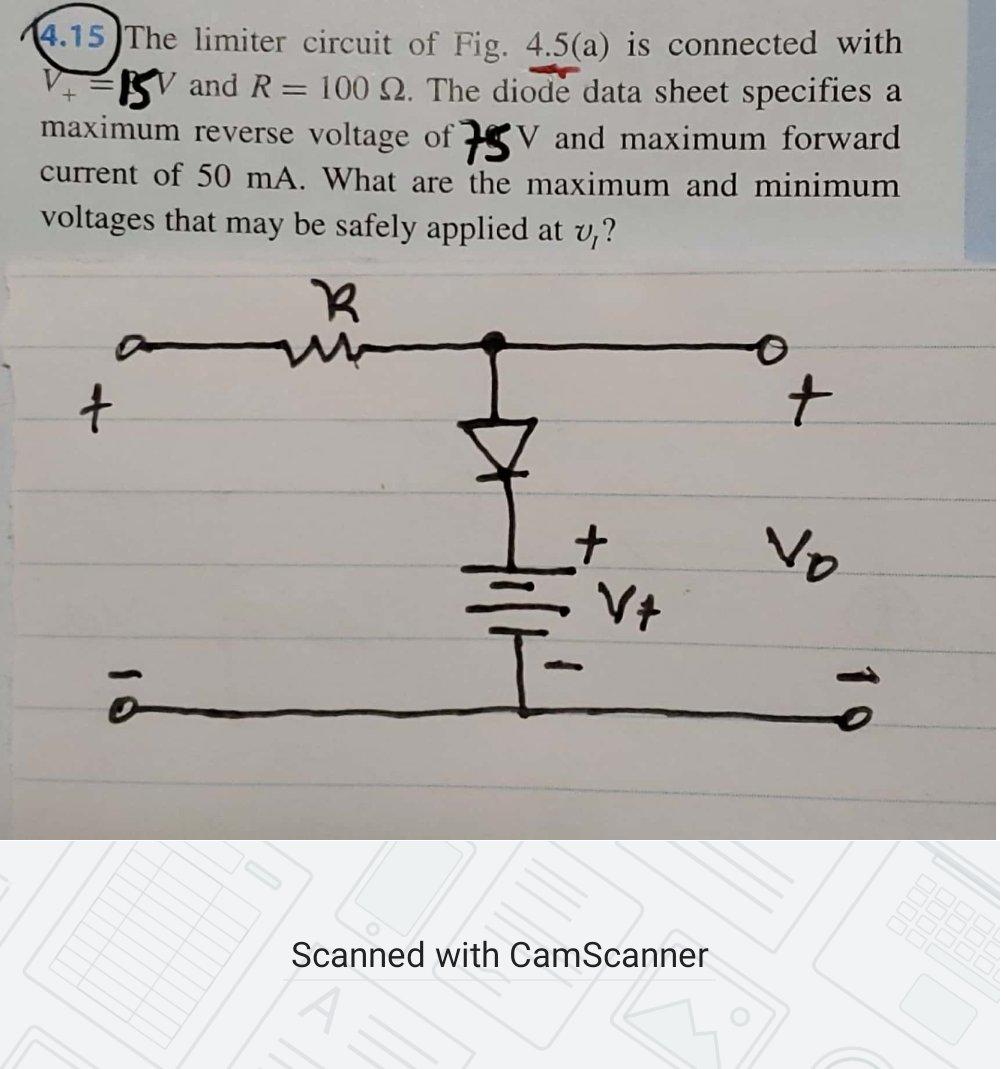 4.15 The limiter circuit of Fig. 4.5(a) is connected with
V₊ = 15 V and R = 100 Ω. The diode data sheet specifies a
maximum reverse voltage of 75 V and maximum forward
current of 50 mA. What are the maximum and minimum
voltages that may be safely applied at v_I?
R
+
+
+
V₀
V+
-
-
-
Scanned with CamScanner